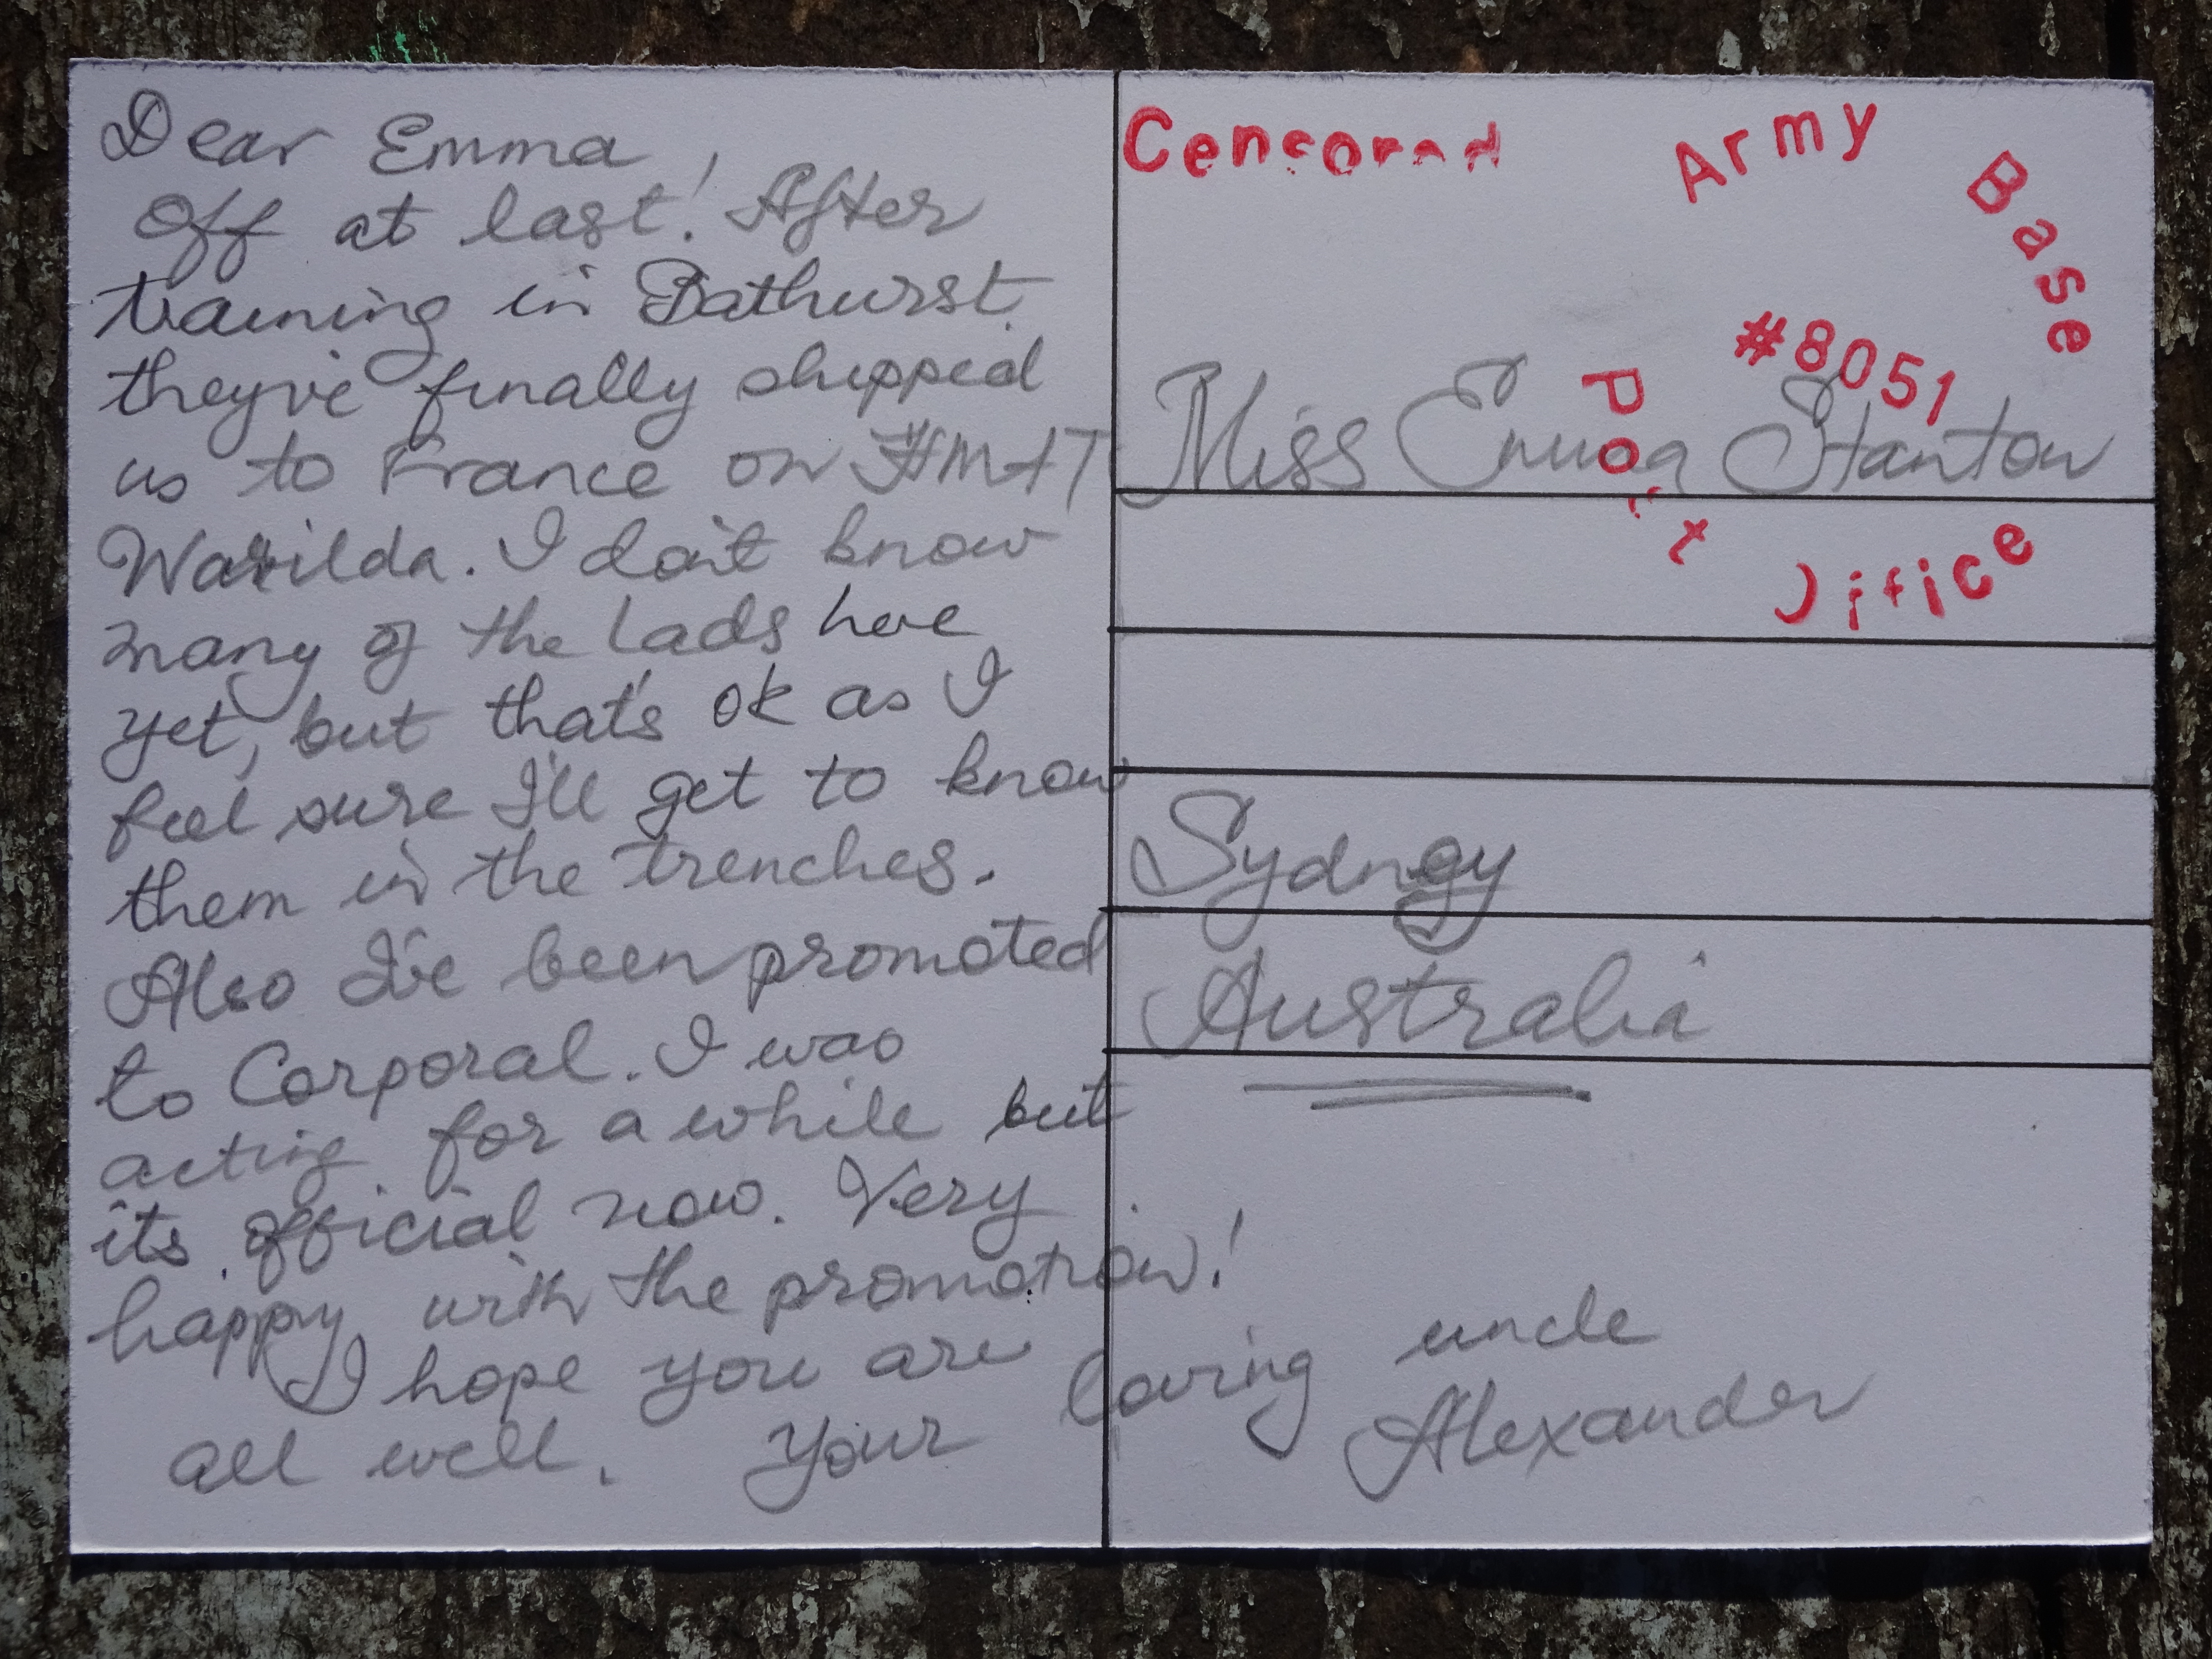 Dear Emma,
Off at last! After
training in Bathurst
theyv'e finally shipped
us to France on HMAT
Warilda. I don't know
many of the lads here
yet, but that's ok as I
feel sure I'll get to know
them in the trenches.
Also I've been promoted
to Corporal. I was
acting for a while but
its official now. Very
happy with the promotion!
I hope you are
all well. Your loving uncle
Alexander
Censored
Army Base
#8051
Post Office
Miss Emma Stanton
Sydney
Australia